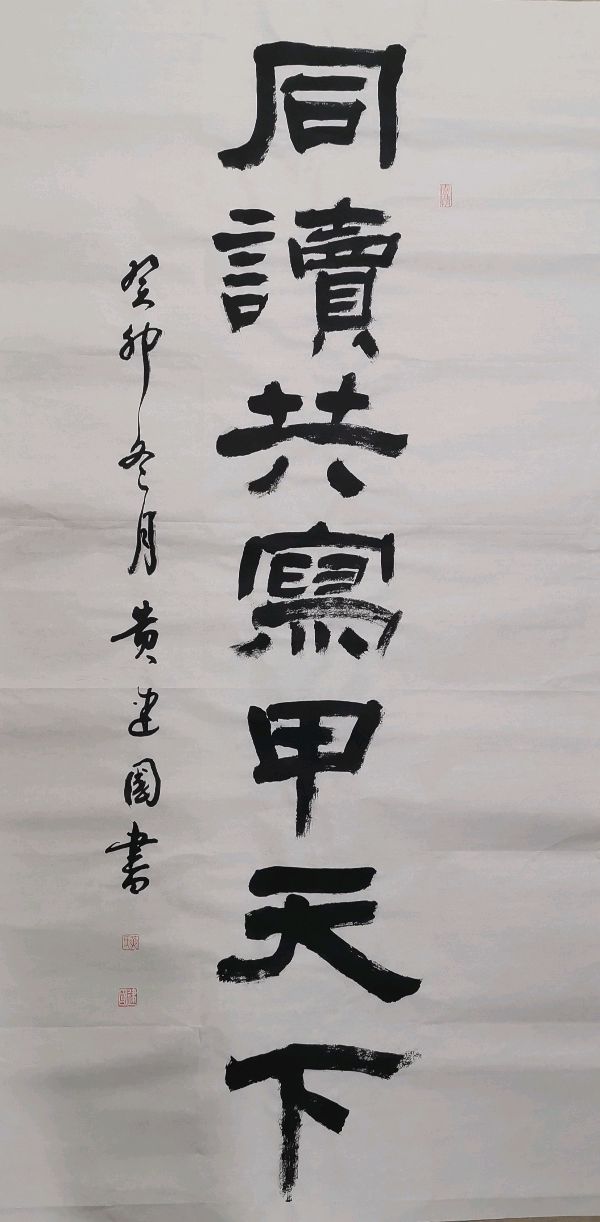 同讀共寫甲天下
癸卯冬月黄建國書